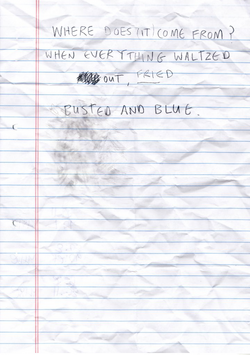 WHERE DOES IT COME FROM?
WHEN EVERYTHING WALTZED
OUT, FRIED
BUSTED AND BLUE.